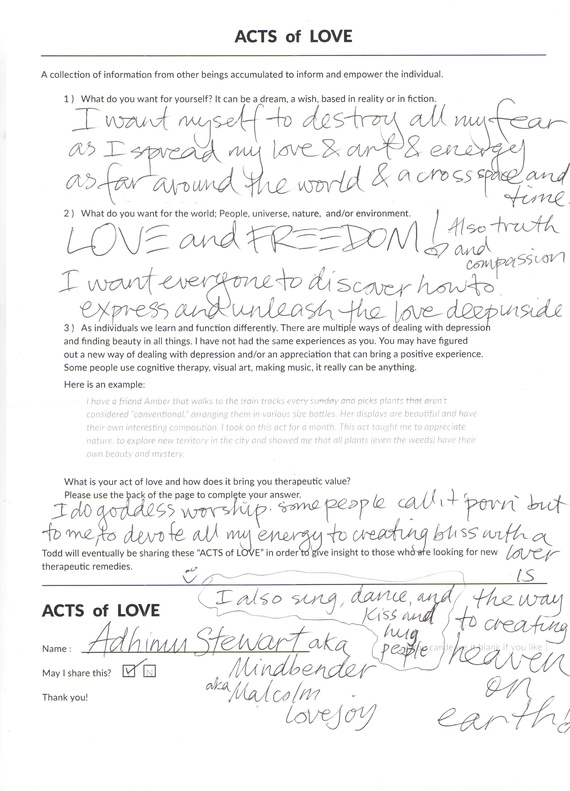 ACTS of LOVE
A collection of information from other beings accumulated to inform and empower the individual.
1 ) What do you want for yourself? It can be a dream, a wish, based in reality or in fiction.
I want myself to destroy all my fear
as I spread my love & art & energy
as far around the world & across space and
time.
2 ) What do you want for the world; People, universe, nature, and/or environment.
LOVE and FREEDOM! Also truth
and
compassion
I want everyone to discover how to
express and unleash the love deep inside
3 ) As individuals we learn and function differently. There are multiple ways of dealing with depression
and finding beauty in all things. I have not had the same experiences as you. You may have figured
out a new way of dealing with depression and/or an appreciation that can bring a positive experience.
Some people use cognitive therapy, visual art, making music, it really can be anything.
Here is an example:
I have a friend Amber that walks to the train tracks every sunday and picks plants that aren't
considered "conventional," arranging them in various size bottles. Her displays are beautiful and have
their own interesting composition. I took on this act for a month. This act taught me to appreciate
nature, to explore new territory in the city and showed me that all plants (even the weeds) have their
own beauty and mystery.
What is your act of love and how does it bring you therapeutic value?
Please use the back of the page to complete your answer.
I do goddess worship. some people call it 'porn' but
to me, to devote all my energy to creating bliss with a
lover
Todd will eventually be sharing these "ACTS of LOVE" in order to give insight to those who are looking for new
therapeutic remedies.
is
the way
to creating
heaven
on
earth!
I also sing, dance, and
kiss and
hug
people
ACTS of LOVE
Name : Adhimu Stewart aka
Mindbender
aka Malcolm
Lovejoy
blank if you like )
May I share this? Y N
Thank you!